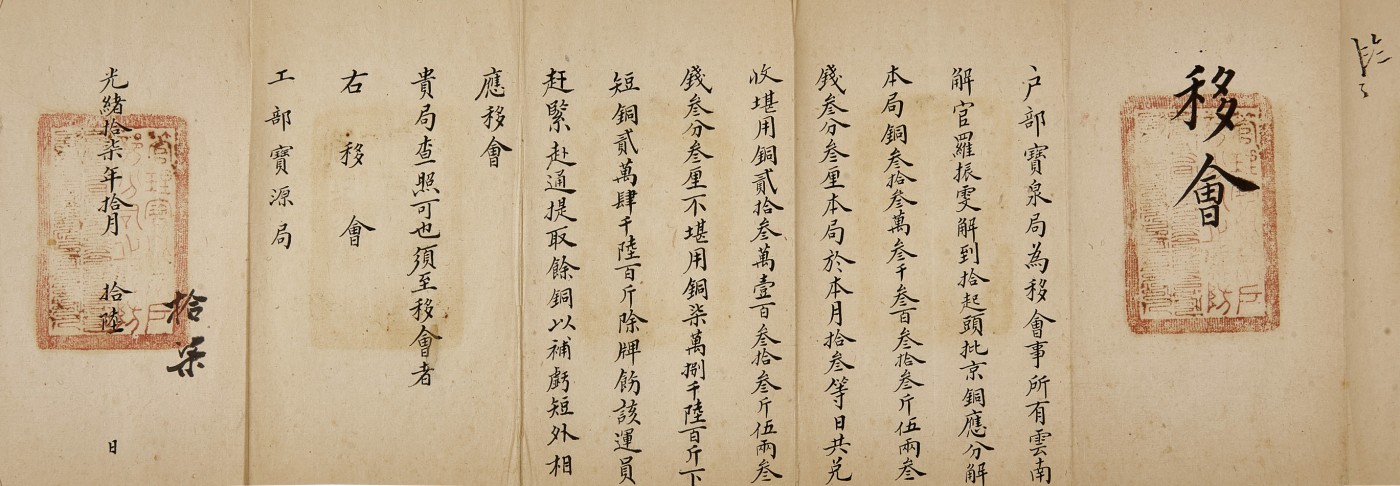 移會
戶部寶泉局為移會事所有雲南
解官羅振雯解到拾起頭批京銅應分解
本局銅叁拾叁萬叁千叁百叁拾叁斤伍兩叁
錢叁分叁厘本局於本月拾叁等日共兌
收堪用銅貳拾叁萬壹百叁拾叁斤伍兩叁
錢叁分叁厘不堪用銅柒萬捌千陸百斤下
短銅貳萬肆千陸百斤除牌飭該運員
赶緊赴通提取餘銅以補虧短外相
應移會
貴局查照可也須至移會者
右移會
工部寶源局
光緒拾柒年拾月 拾陸 日
拾柒